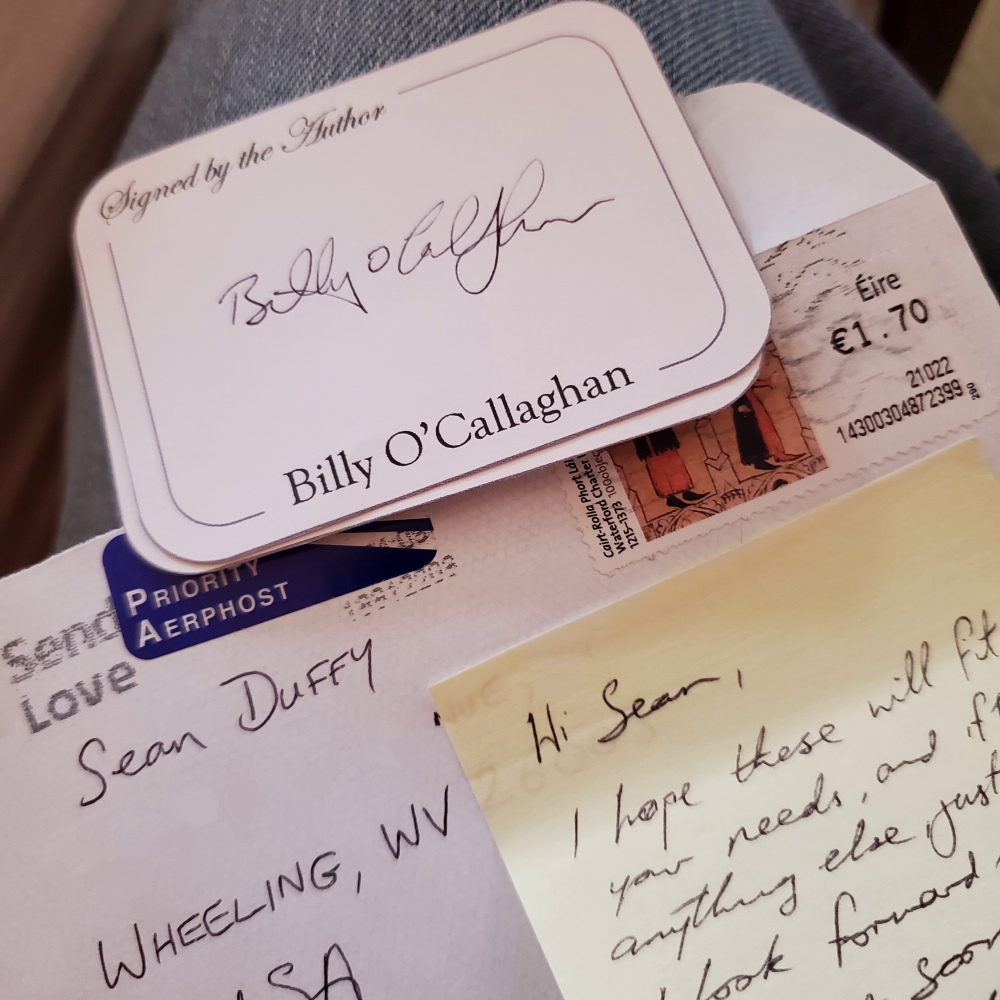 Signed by the Author
Billy O'Callaghan
Billy O'Callaghan
Éire
€1.70
21022
14300304872399
290
Cairt Rolla Phort Lá
Waterford Charter
1215-1373 100objec
PRIORITY
AERPHOST
Send
Love
Sean Duffy
WHEELING, WV
USA
Hi Sean,
I hope these will fit
your needs, and if
anything else, just
look forward
soon